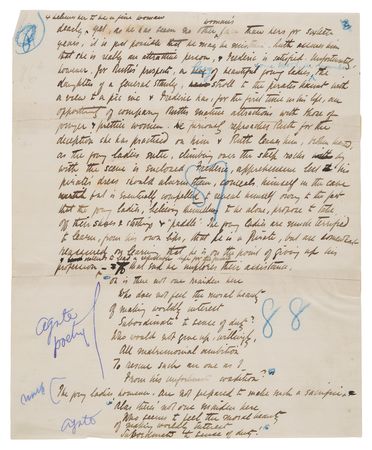 & believes her to be a fine woman
8
8
woman's
dearly, & yet, as he has seen no other face than hers for sixteen
years, it is just possible that he may be mistaken. Ruth assures him
that she is really an attractive person, & Frederic is satisfied. Unfortunately,
however, for Ruth's prospects, a bevy of beautiful young ladies, the
daughters of a general stroll to the pirates' haunt with
a view to a pic nic & Frederic has, for the first time in his life, an
opportunity of comparing Ruth's mature attractions with those of
younger & prettier women. He furiously reproaches Ruth for the
deception she has practised on him & Ruth leaves him,
as the young ladies enter, climbing over the steep rocks
with the scene is enclosed. Frederic, apprehensive lest his
pirate's dress should alarm them, conceals himself in the cave
but is eventually compelled to reveal himself owing to the fact
that the young ladies, believing themselves to be alone, propose to take
off their shoes & stockings & "paddle". The young ladies are much terrified
to learn, from his own lips, that he is a Pirate, but are somewhat
reassured on learning that he is on the point of giving up his
profession
& intends to lead a life
that and he implores their assistance.
87
Oh is there not one maiden here
Who does not feel the moral beauty
of making worldly interest
Subordinate to sense of duty?
Who would not give up, willingly,
All matrimonial ambition
To rescue such an one as I
From his unfortunate position?
agate
poetry
88
The young ladies, however, are not prepared to make such a sacrifice.
Alas there's not one maiden here
Who seems to feel the moral beauty
of making worldly interest
Subordinate to sense of duty!
agate